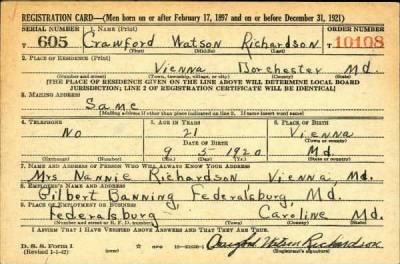 REGISTRATION CARD—(Men born on or after February 17, 1897 and on or before December 31, 1921)
SERIAL NUMBER 1. NAME (Print) ORDER NUMBER
T 605 Crawford Watson Richardson 10108
(First) (Middle) (Last)
2. PLACE OF RESIDENCE (Print)
Vienna Dorchester Md.
(Number and street) (Town, township, village, or city) (County) (State)
[THE PLACE OF RESIDENCE GIVEN ON THE LINE ABOVE WILL DETERMINE LOCAL BOARD
JURISDICTION; LINE 2 OF REGISTRATION CERTIFICATE WILL BE IDENTICAL]
3. MAILING ADDRESS
Same
[Mailing address if other than place indicated on line 2. If same insert word same]
4. TELEPHONE 5. AGE IN YEARS 6. PLACE OF BIRTH
No 21 Vienna
DATE OF BIRTH (Town or county)
9 5 1920 Md.
(Mo.) (Day) (Yr.) (State or country)
7. NAME AND ADDRESS OF PERSON WHO WILL ALWAYS KNOW YOUR ADDRESS
Mrs Nannie Richardson Vienna, Md.
8. EMPLOYER'S NAME AND ADDRESS
Gilbert Banning Federalsburg, Md.
9. PLACE OF EMPLOYMENT OR BUSINESS
Federalsburg Caroline Md.
(Number and street or R. F. D. number) (Town) (County) (State)
I AFFIRM THAT I HAVE VERIFIED ABOVE ANSWERS AND THAT THEY ARE TRUE.
D. S. S. Form 1
(Revised 1-1-42) Crawford Watson Richardson
(Registrant's signature)